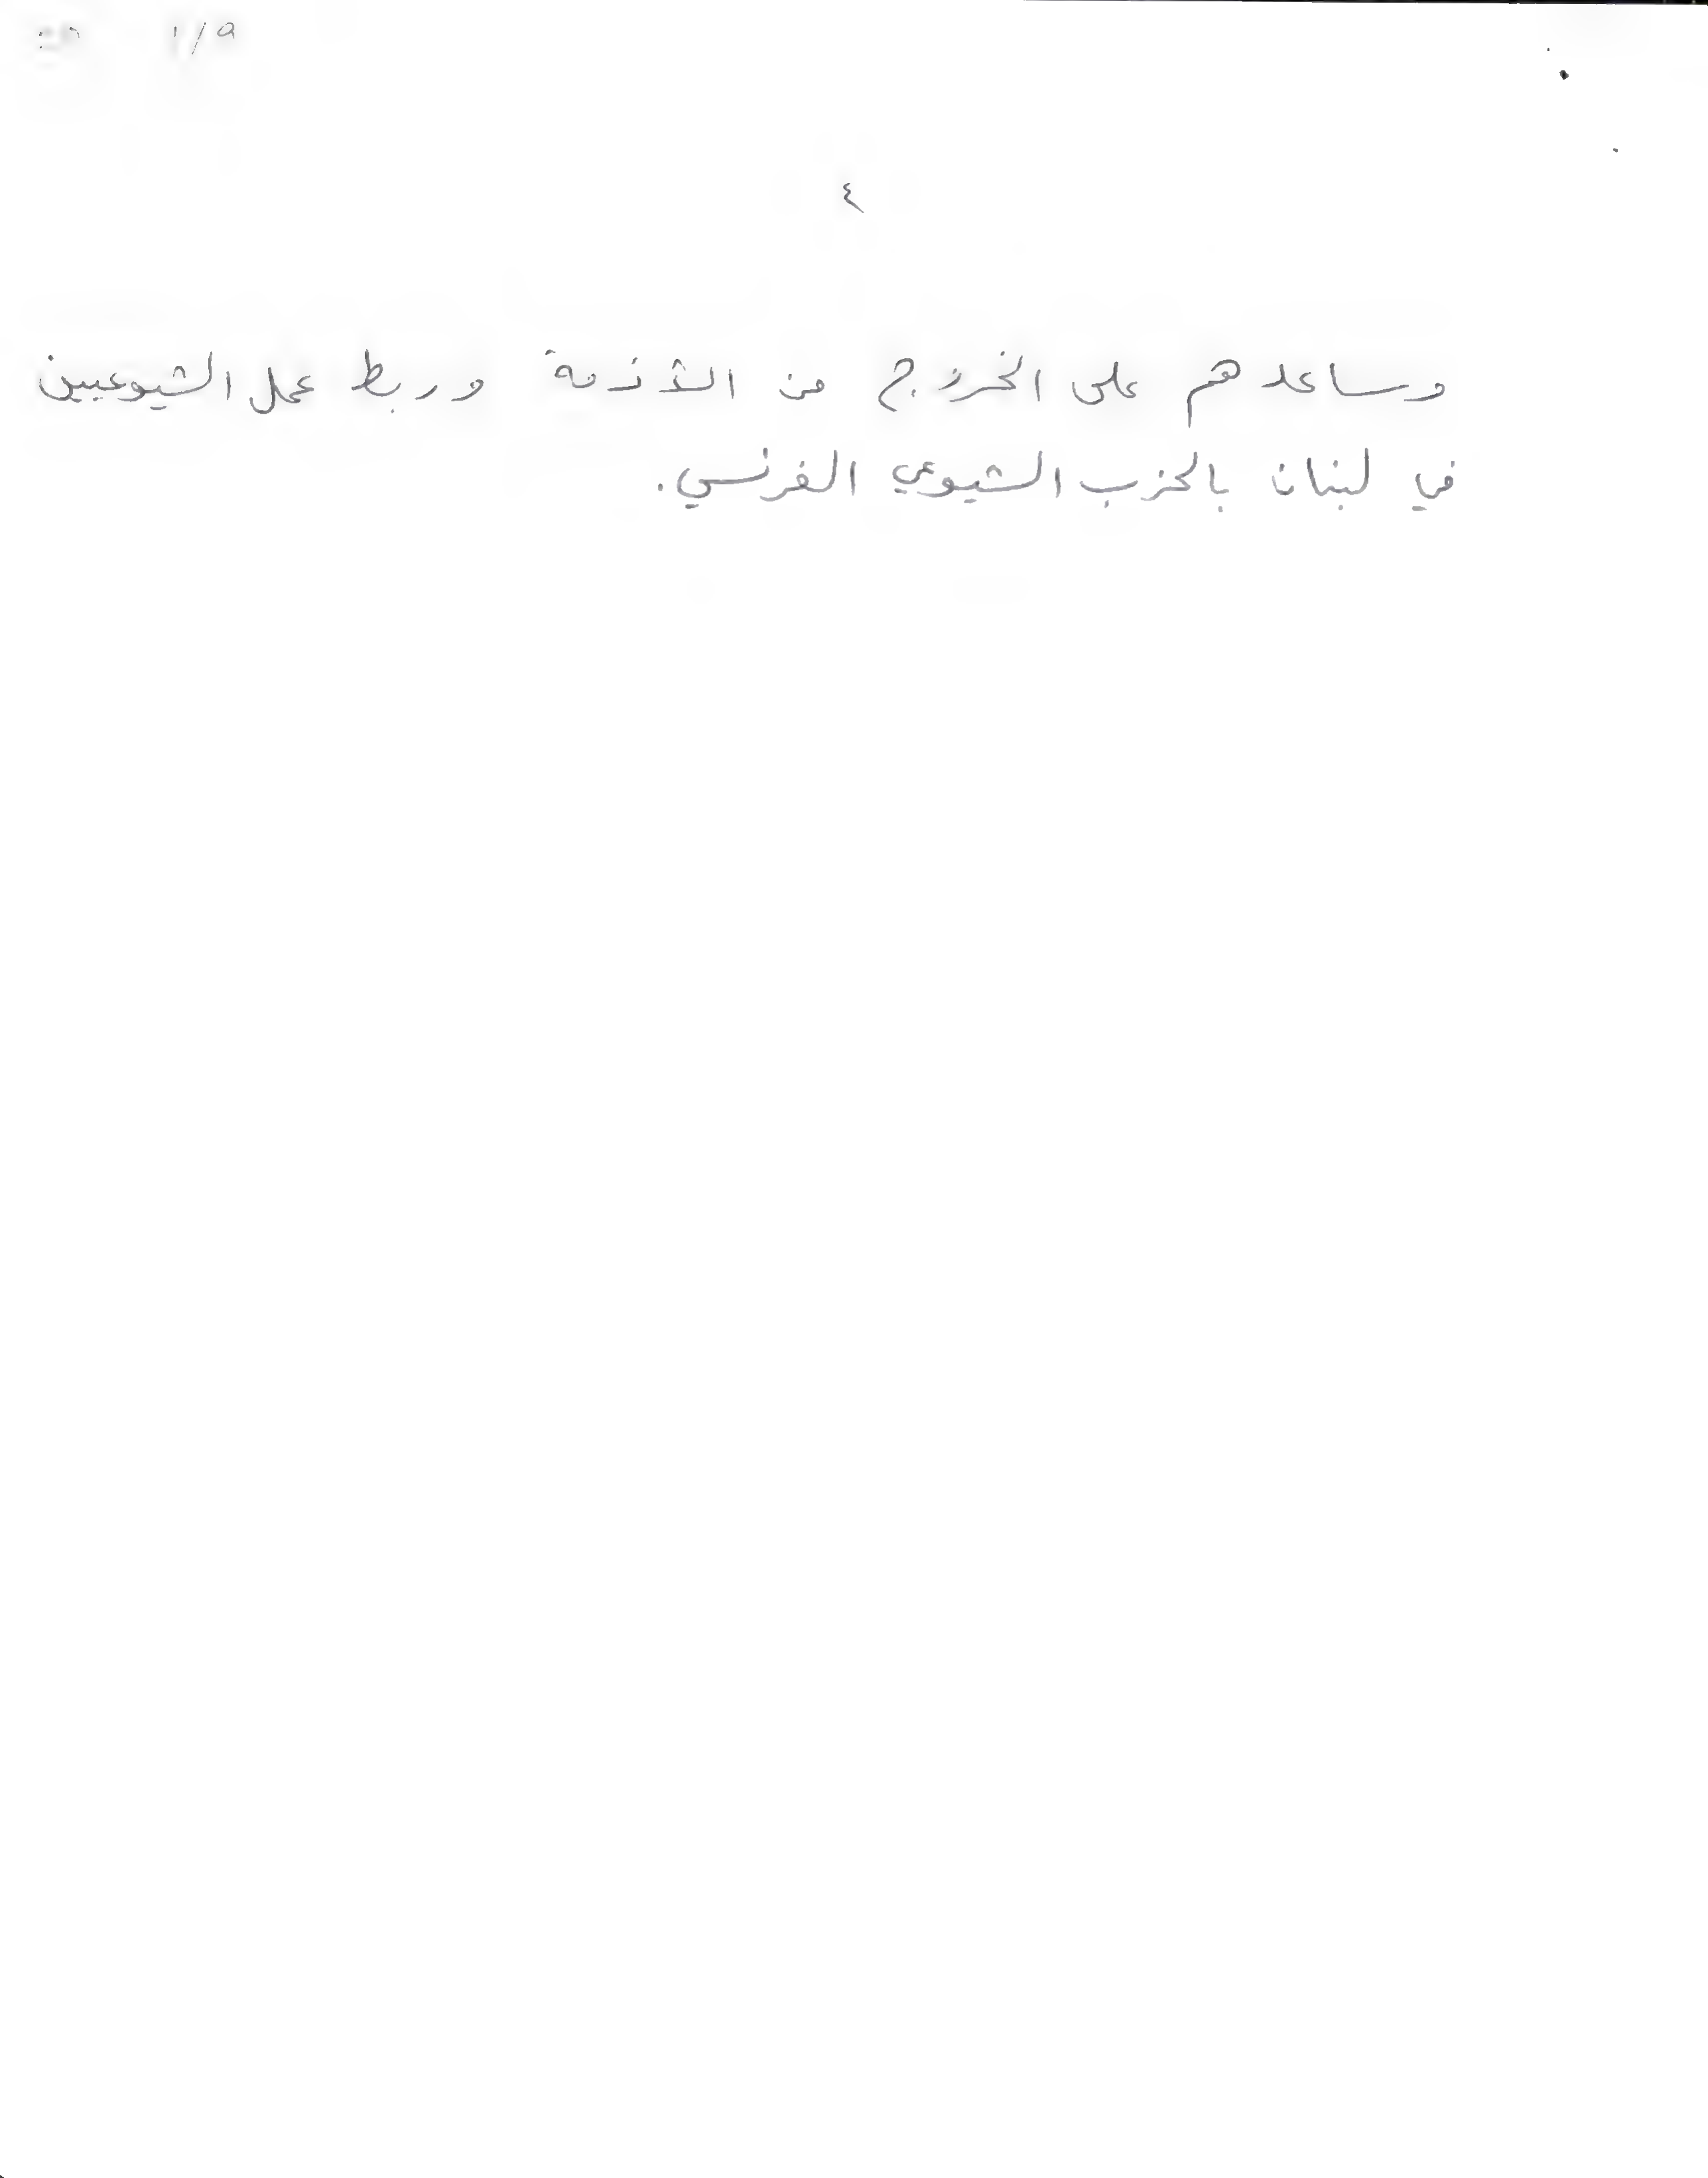 ٤
وساعدهم على الخروج من الأزمة وربط عمل الشيوعيين
في لبنان بالحزب الشيوعي الفرنسي.